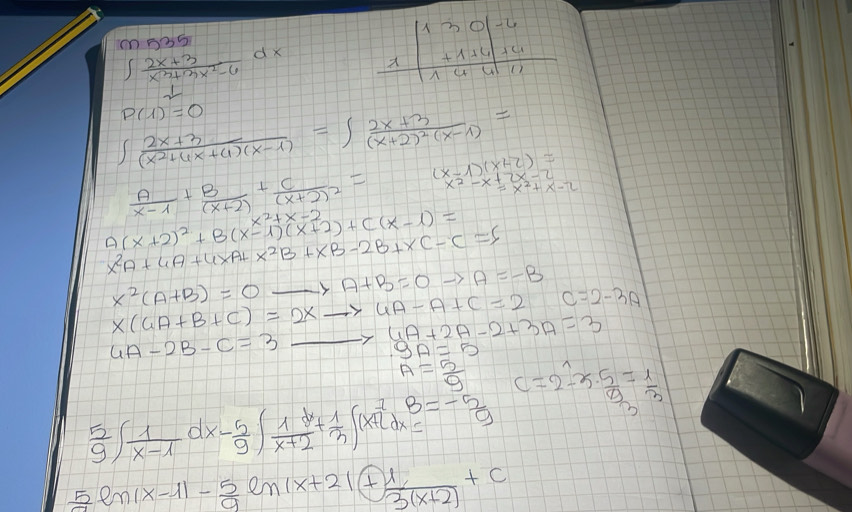 n 535
∫ 2x+3 / x³+3x²-4 dx
1 3 0 -4
1 +1 +4 +4
1 4 4 //
P(1)=0
∫ 2x+3 / (x²+4x+4)(x-1) = ∫ 2x+3 / (x+2)²(x-1) =
A/x-1 + B/(x+2) + C/(x+2)² =
(x-1)(x+2) =
x²-x+2x-2
= x²+x-2
x²+x-2
A(x+2)² + B(x-1)(x+2) + C(x-1) =
x²A+4A+4xA+x²B+xB-2B+xC-C=
x²(A+B)=0 → A+B=0 → A=-B
x(4A+B+C)=2x → 4A-A+C=2 C=2-3A
4A-2B-C=3 → 4A+2A-2+3A=3
9A=5
A=5/9 C=2-3·5/9=1/3
B=-5/9
5/9 ∫ 1/x-1 dx - 5/9 ∫ 1/x+2 + 1/3 ∫ 1/(x+2)² dx =
5/9 ln|x-1| - 5/9 ln|x+2| + 1/3(x+2) + C